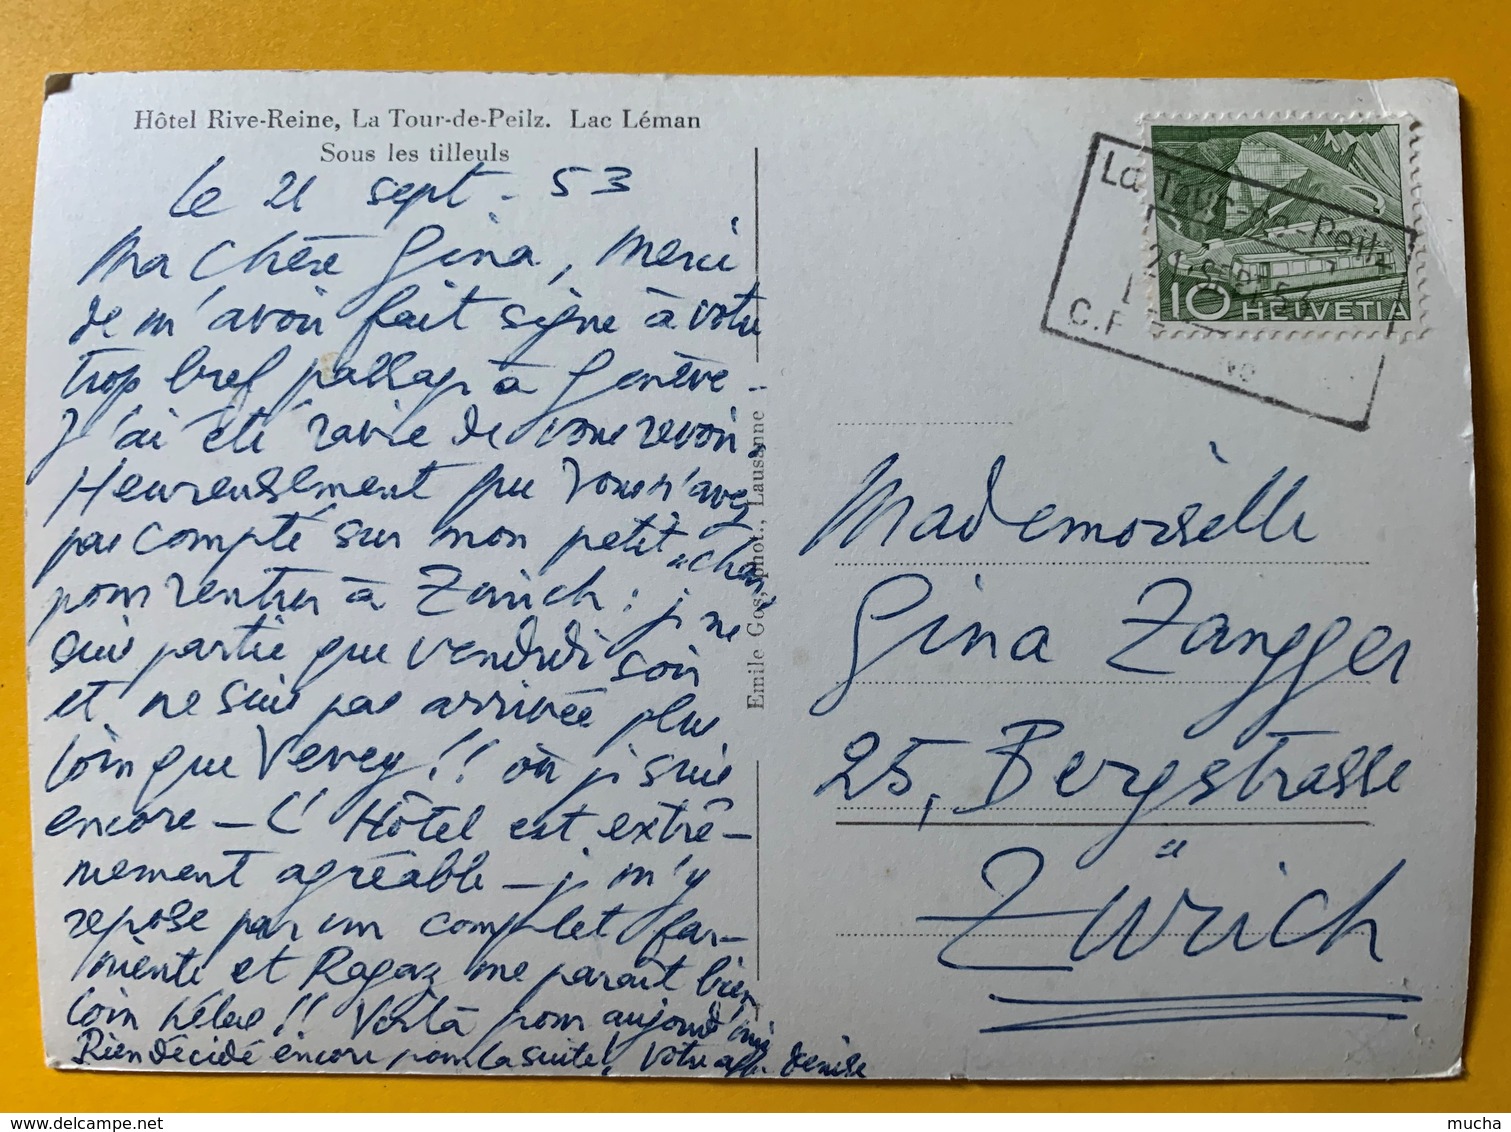 Hôtel Rive-Reine, La Tour-de-Peilz. Lac Léman
Sous les tilleuls
Le 21 sept - 53
Ma Chère Gina, Merci
de m'avoir fait signe à votre
trop bref passage à Genève -
J'ai été ravie de vous revoir,
Heureusement que vous n'avez
pas compté sur mon petit "char"
pour rentrer à Zürich : j ne
suis partie que vendredi soir
et ne suis pas arrivée plus
loin que Vevey !! où j suis
encore - L'Hôtel est extrê-
mement agréable - j m'y
repose par un complet far-
niente et Ragaz me parait bien
loin hélas !! Voilà pour aujourd'hui
Rien décidé encore pour la suite ! Votre aff. Denise
Emile Gos, phot., Lausanne
La Tour-de-Peilz
21 SEPT 53
C.F
10 HELVETIA
Mademoiselle
Gina Zangger
25, Bergstrasse
Zürich
mucha